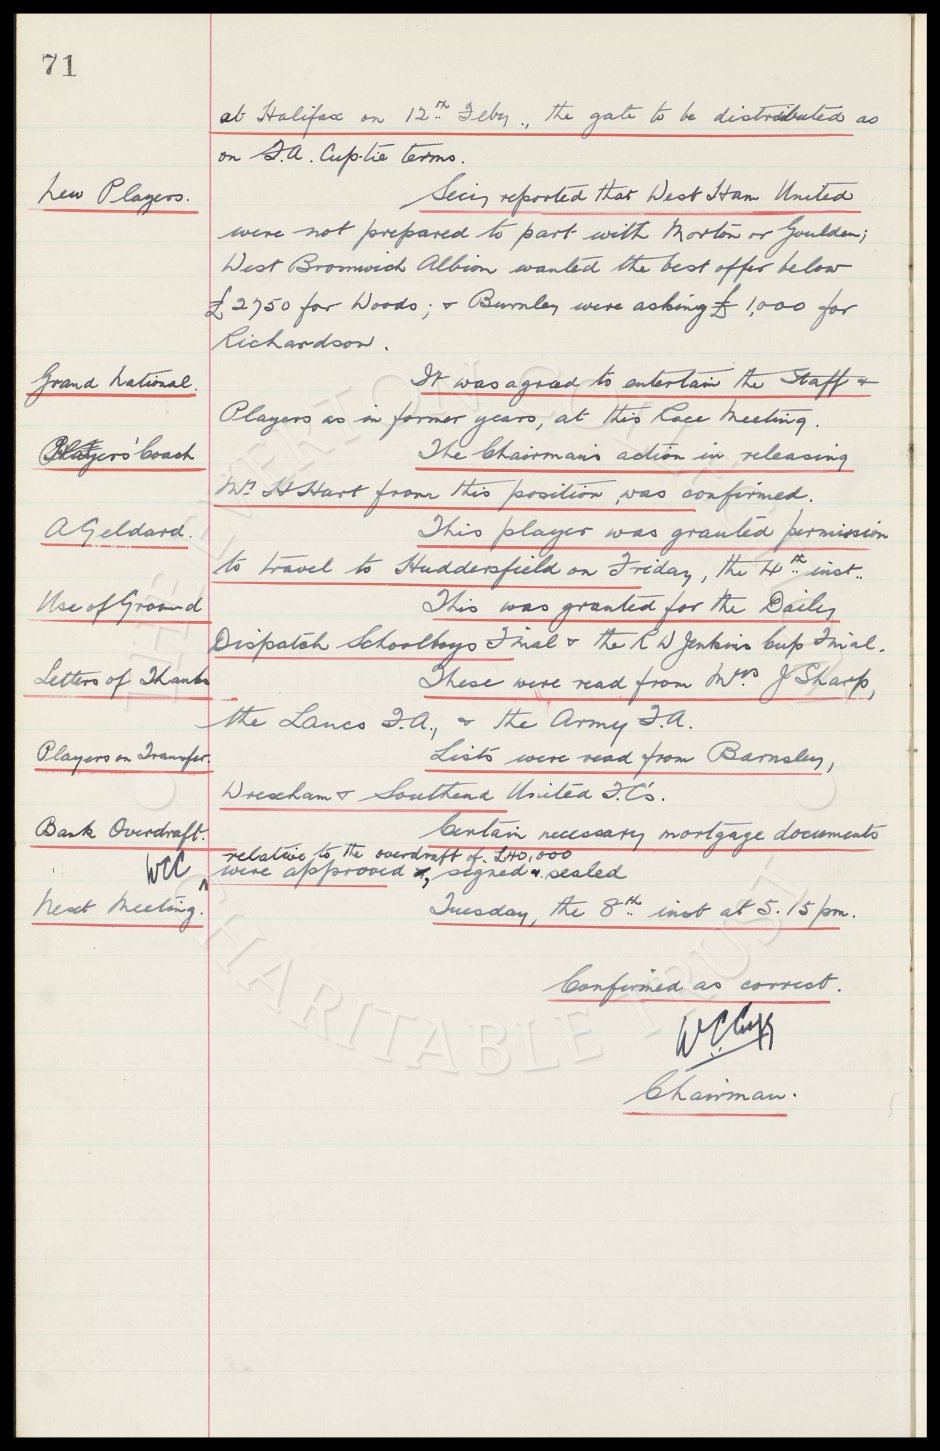 71
at Halifax on 12th Feby., the gate to be distributed as
on F.A. Cup-tie terms.
New Players. Secy reported that West Ham United
were not prepared to part with Morton or Goulden;
West Bromwich Albion wanted the best offer below
£2750 for Woods; & Burnley were asking £1,000 for
Richardson.
Grand National. It was agreed to entertain the Staff &
Players as in former years, at this Race Meeting.
Players' Coach The Chairman's action in releasing
Mr. H Hart from this position, was confirmed.
A Geldard. This player was granted permission
to travel to Huddersfield on Friday, the 4th inst.
Use of Ground This was granted for the Daily
Dispatch Schoolboys Final & the R W Jenkins Cup Final.
Letters of Thanks These were read from Mrs J Sharp,
the Lancs F.A., & the Army F.A.
Players on Transfer. Lists were read from Barnsley,
Wrexham & Southend United F.C's.
Bank Overdraft. Certain necessary mortgage documents
relative to the overdraft of £40,000
WCC were approved, signed & sealed
Next Meeting. Tuesday, the 8th inst at 5.15 pm.
Confirmed as correct.
W C Cuff
Chairman.
THE EVERTON COLLECTION
CHARITABLE TRUST